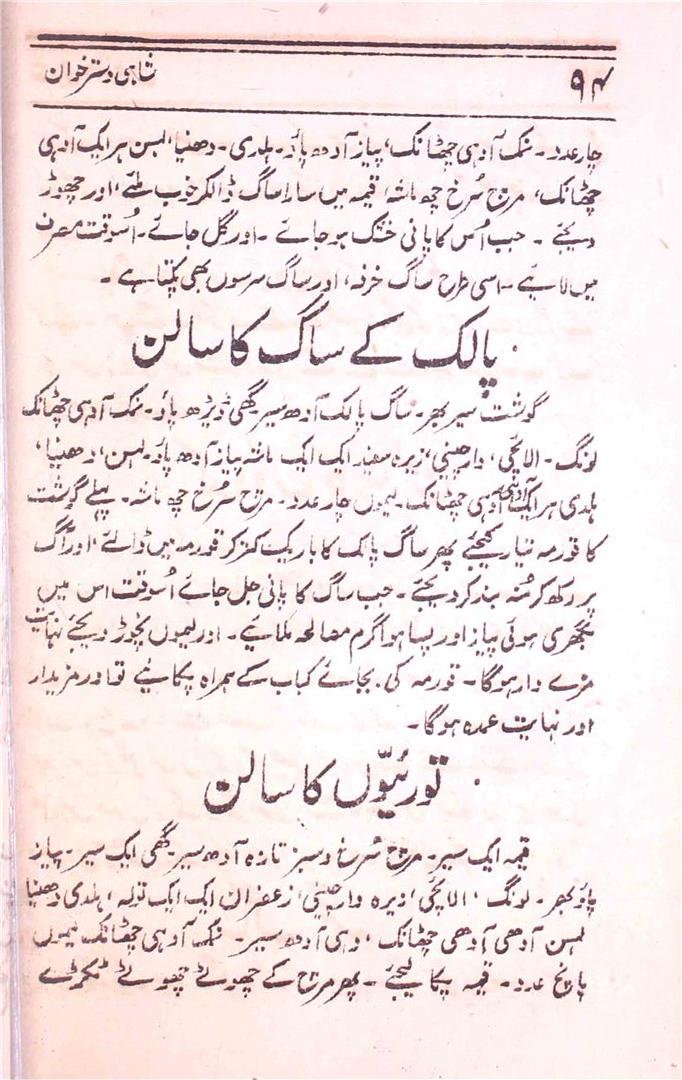 ۹۴
شاہی دسترخوان
چار عدد۔ نمک آدہی چھٹانک، پیاز آدھ پاؤ۔ ہلدی۔ دھنیا، لہسن ہر ایک آدہی
چھٹانک، مرچ سُرخ چھ ماشہ، قیمہ میں سارا ساگ ڈالکر خوب ملئے، اور چھوڑ
دیجئے۔ جب اُس کا پانی خشک ہو جائے۔ اور گل جائے۔ اُسوقت مصرف
میں لائیے۔ اسی طرح ساگ خرفہ، اور ساگ سرسوں بھی پکتا ہے۔
پالک کے ساگ کا سالن
گوشت سیر بھر۔ ساگ پالک آدھ سیر گھی ڈیڑھ پاؤ۔ نمک آدہی چھٹانک
لونگ۔ الائچی، دارچینی، زیرہ سفید ایک ایک ماشہ پیاز آدھ پاؤ۔ لہسن، دھنیا،
ہلدی ہر ایک آدہی آدہی چھٹانک۔ لیموں چار عدد۔ مرچ سُرخ چھ ماشہ۔ پہلے گوشت
کا قورمہ تیار کیجئے پھر ساگ پالک کا باریک کتر کر قورمہ میں ڈالئے، اور آگ
پر رکھ کر مُنہ بند کر دیجئے۔ جب ساگ کا پانی جل جائے اُسوقت اس میں
بگھری ہوئی پیاز اور پسا ہوا گرم مصالحہ ملائیے۔ اور لیموں نچوڑ دیجئے نہایت
مزے دار ہوگا۔ قورمہ کی بجائے کباب کے ہمراہ پکائیے تو اور مزیدار
اور نہایت عمدہ ہوگا۔
تورئیوّں کا سالن
قیمہ ایک سیر۔ مرچ سُرخ و سبز تازہ آدھ سیر گھی ایک سیر۔ پیاز
پاؤ بھر۔ لونگ، الائچی، زیرہ دارچینی، زعفران ایک ایک تولہ، ہلدی دھنیا
لہسن آدھی آدھی چھٹانک، دہی آدھ سیر۔ نمک آدہی چھٹانک لیموں
پانچ عدد۔ قیمہ پکا لیجئے۔ پھر مرچ کے چھوٹے چھوٹے ٹکڑے